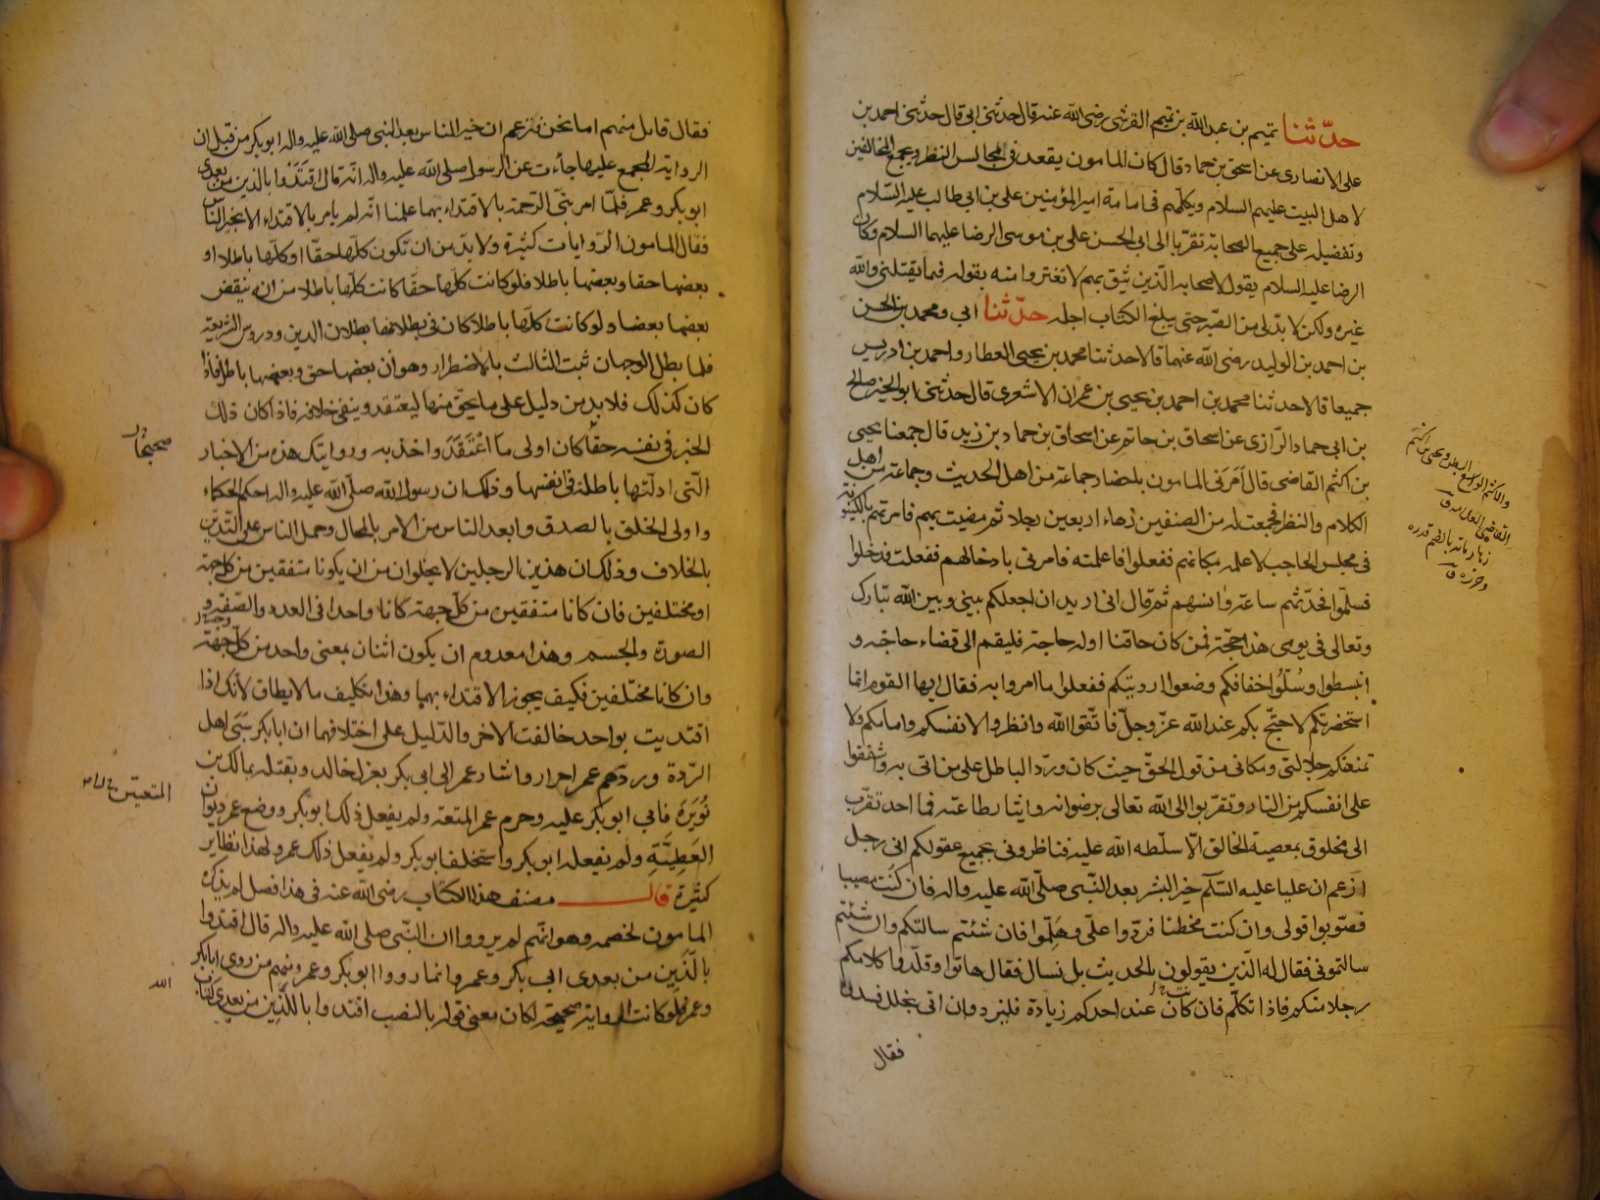 حدّثنا تميم بن عبد الله بن تميم القرشى رضى الله عنه قال حدثنى ابى قال حدثنى احمد بن
على الانصارى عن اسحق بن حماد قال كان المامون يقعد فى المجالس النظر ويجمع المخالفين
لاهل البيت عليهم السلام ويكلمهم فى امامة امير المؤمنين على بن ابى طالب عليه السلام
وتفضيله على جميع الصحابة تقربا الى ابى الحسن على بن موسى الرضا عليهما السلام وكان
الرضا عليه السلام يقول لاصحابه الذين يثق بهم لا تغتروا منه بقوله فما يقتلنى والله
غيره ولكن لا بد لى من الصبر حتى يبلغ الكتاب اجله حدّثنا ابى ومحمد بن الحسن
بن احمد بن الوليد رضى الله عنهما قالا حدثنا محمد بن يحيى العطار واحمد بن ادريس
جميعا قالا حدثنا محمد بن احمد بن يحيى بن عمران الاشعرى قال حدثنى ابو الخير صالح
بن ابى حماد الرازى عن اسحاق بن حاتم عن اسحاق بن حماد بن زيد قال جمعنا يحيى
بن اكثم القاضى قال أمرنى المامون باحضار جماعة من اهل الحديث وجماعة من اهل
الكلام والنظر فجمعت له من الصنفين زهاء اربعين رجلا ثم مضيت بهم فامرتهم بالكينونة
فى مجلس الحاجب لاعلمه بمكانهم ففعلوا فاعلمته فامرنى بادخالهم ففعلت فدخلوا
فسلّموا فحدّثهم ساعة وانسهم ثم قال انى اريد ان اجعلكم بينى وبين الله تبارك
وتعالى فى يومى هذا حجّة فمن كان حاقنا او له حاجة فليقم الى قضاء حاجته و
انبسطوا وسلّوا خفافكم وضعوا ارديتكم ففعلوا ما امروا به فقال ايها القوم انما
استحضرتكم لاحتج بكم عند الله عز وجلّ فاتّقوا الله وانظروا لانفسكم وامامكم ولا
تمنعكم جلالتى ومكانى من قول الحق حيث كان وردّ الباطل على من اتى به واشفقوا
على انفسكم من النار وتقربوا الى الله تعالى برضوانه وايثار طاعته فما احد تقرّب
الى مخلوق بمعصية الخالق الّا سلّطه الله عليه فناظرونى بجميع عقولكم انى رجل
ازعم ان عليا عليه السّلام خير البشر بعد النّبى صلّى الله عليه واله فان كنت مصيبا
فصوّبوا قولى وان كنت مخطئا فردّوا علىّ وهَلِمّوا فان شئتم سالتكم وان شئتم
سالتمونى فقال له الّذين يقولون بالحديث بل نسال فقال هاتوا وقلّدوا كلامكم
رجلا منكم فاذا تكلّم فان كان عند احدكم زيادة فليزد وان اتى بخلل فسددوه
فقال
فقال قائل منهم اما نحن فنزعم ان خير الناس بعد النبى صلى الله عليه واله ابو بكر من قبل ان
الرواية المجمع عليها جاءت عن الرسول صلى الله عليه واله انّه قال اقتدوا بالذين من بعدى
ابو بكر وعمر فلمّا امر نبىّ الرّحمة بالاقتداء بهما علمنا انّه لم يامر بالاقتداء الا بخير النّاس
فقال المامون الرّوايات كثيرة ولا بدّ من ان تكون كلّها حقّا او كلّها باطلا او
بعضها حقا وبعضها باطلا فلو كانت كلّها حقا كانت كلّها باطلا من ان ينقض
بعضها بعضا ولو كانت كلّها باطلا كان فى بطلانها بطلان الدين ودروس الشريعة
فلما بطل الوجهان ثبت الثالث بالاضطرار وهو أن بعضها حق وبعضها باطل فاذا
كان كذلك فلا بد من دليل على ما يحق منها ليعتقد وينفى خلافه فاذا كان ذلك
الخبر فى نفسه حقّا كان اولى ما اعتقد واخذ به وروايتك هذه من الاخبار
الّتى ادلّتها باطلة فى انفسها وذلك ان رسول الله صلّى الله عليه واله احكم الحكماء
واولى الخلق بالصدق وابعد الناس من الامر بالمحال وحمل الناس على التّديّن
بالخلاف وذلك ان هذين الرجلين لا يخلوان من ان يكونا متفقين من كل جهة
او مختلفين فان كانا متفقين من كلّ جهة كانا واحدا فى العدد والصّفة و
الصورة والجسم وهذا معدوم ان يكون اثنان بمعنى واحد من كلّ جهة
وان كانا مختلفين فكيف يجوز الاقتداء بهما وهذا تكليف ما لا يطاق لأنك اذا
اقتديت بواحد خالفت الاخر والدّليل على اختلافهما ان ابا بكر سبى اهل
الرّدة وردّهم عمر احرارا واشار عمر الى ابى بكر بعزل خالد وبقتله بمالك بن
نُوَيرَة فابى ابو بكر عليه وحرم عمر المتعة ولم يفعل ذلك ابو بكر ووضع عمر ديوان
العَطِيَّةِ ولم يفعله ابو بكر واستخلف ابو بكر ولم يفعل ذلك عمر ولهذا نظاير
كثيرة قال مصنف هذا الكتاب رضى الله عنه فى هذا فصل لم يذكره
المامون لخصمه وهو انّهم لم يرووا ان النّبى صلى الله عليه واله قال اقتدوا
بالّذين من بعدى ابى بكر وعمر وانما رووا ابو بكر وعمر ومنهم من روى ابا بكر
وعمر فلو كانت الرواية صحيحة لكان معنى قوله بالنصب اقتدوا بالّلذين من بعدى كتاب
الله